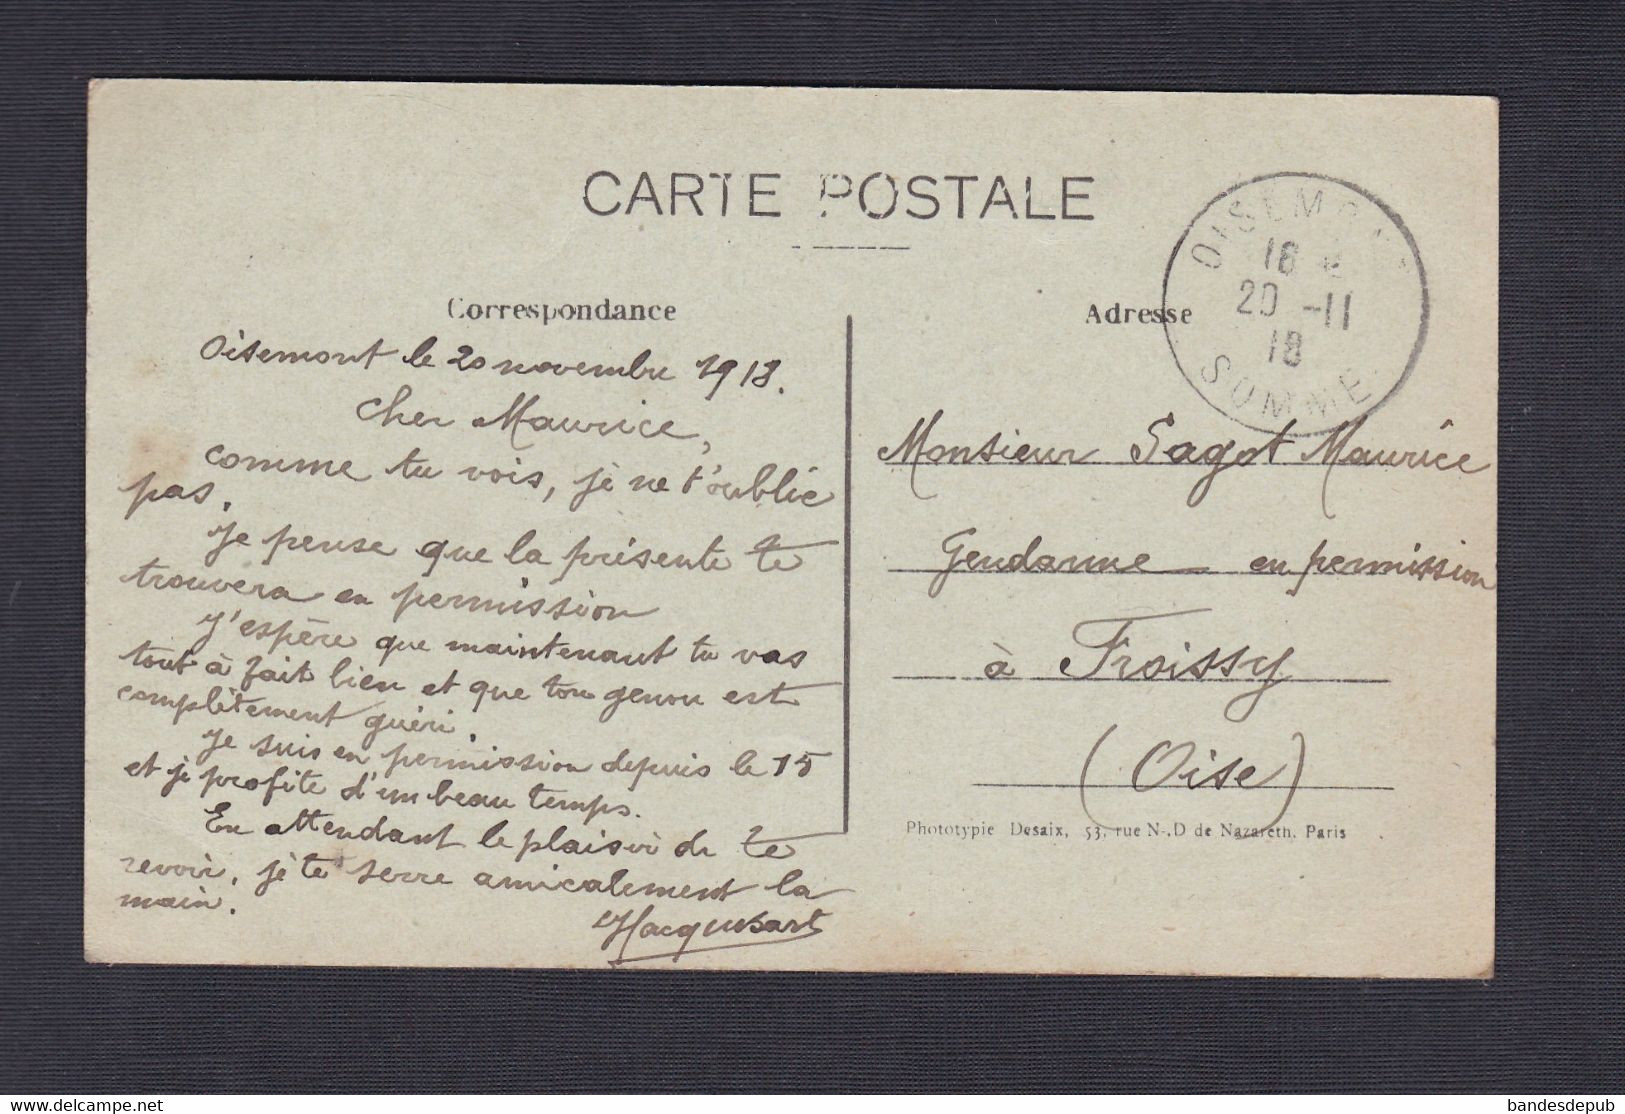 CARTE POSTALE
Correspondance
Oisemont le 20 novembre 1918.
Cher Maurice,
comme tu vois, je ne t'oublie
pas.
Je pense que la présente te
trouvera en permission
J'espère que maintenant tu vas
tout à fait bien et que ton genou est
complètement guéri.
Je suis en permission depuis le 15
et je profite d'un beau temps.
En attendant le plaisir de te
revoir, je te serre amicalement la
main.
Adresse
OISEMONT
18
20 -11
18
SOMME
Monsieur Sagot Maurice
Gendarme en permission
à Froissy
(Oise)
Phototypie Desaix, 53, rue N-.D de Nazareth, Paris
www.delcampe.net
bandesdepub